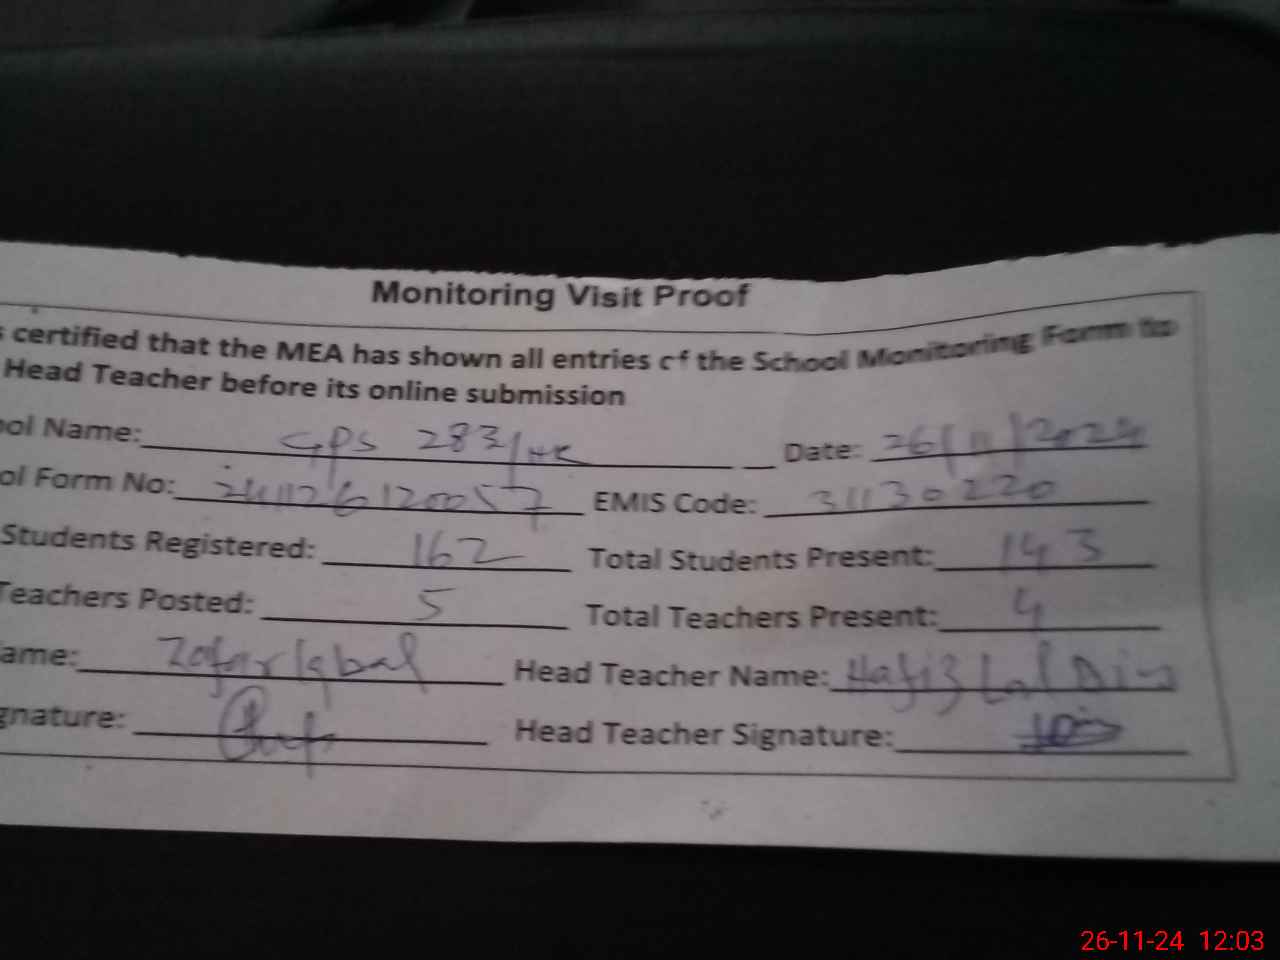 Monitoring Visit Proof
s certified that the MEA has shown all entries of the School Monitoring Form to
Head Teacher before its online submission
ool Name: GPS 283/HR Date: 26/11/2024
ol Form No: 241126120057 EMIS Code: 31130220
Students Registered: 162 Total Students Present: 143
Teachers Posted: 5 Total Teachers Present: 4
ame: Zafar Iqbal Head Teacher Name: Hafiz Lal Din
gnature: Head Teacher Signature:
26-11-24 12:03